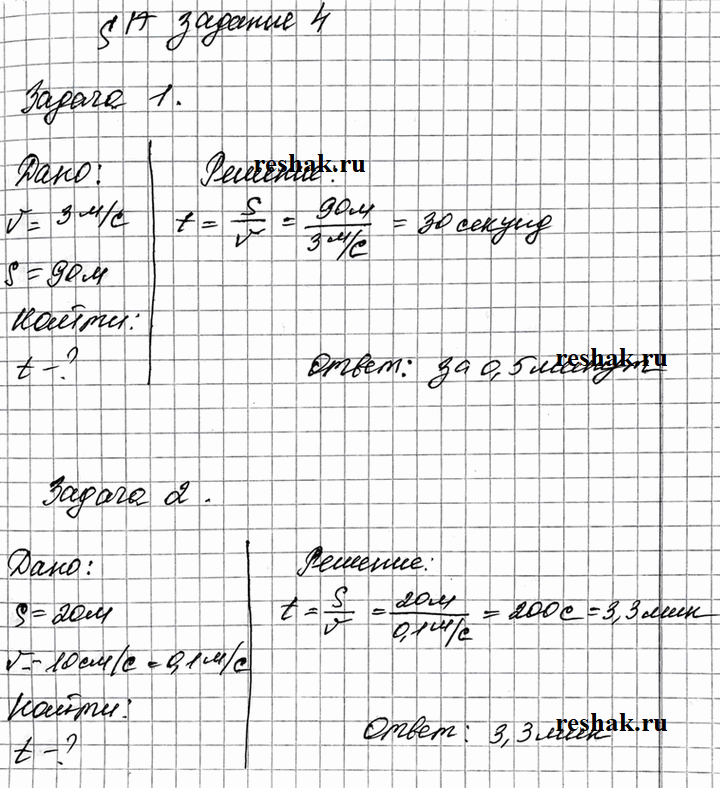 § 17 задание 4
Задача 1.
Дано:
v = 3 м/с
S = 90 м
Найти:
t – ?
Решение:
reshak.ru
t = S/v = 90 м / 3 м/с = 30 секунд
Ответ: за 0,5 минут
reshak.ru
Задача 2.
Дано:
S = 20 м
v = 10 см/с = 0,1 м/с
Найти:
t – ?
Решение:
t = S/v = 20 м / 0,1 м/с = 200 с = 3,3 мин
Ответ: 3,3 мин
reshak.ru